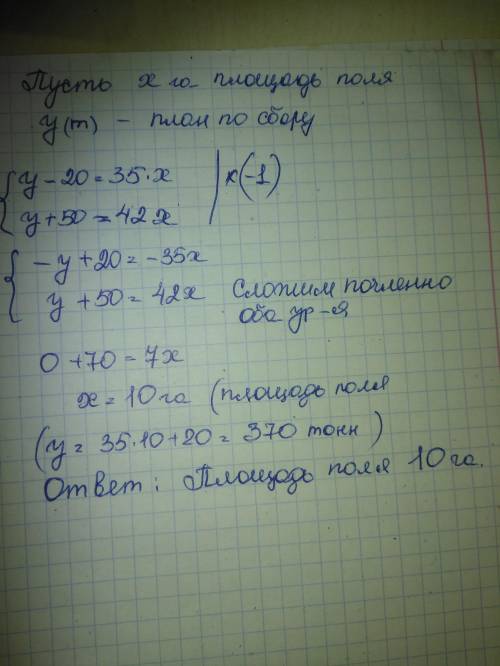 Пусть x га площадь поля
y(т) – план по сбору
y – 20 = 35·x | x(-1)
y + 50 = 42x
– y + 20 = –35x
y + 50 = 42x Сложим почленно
оба ур-я
0 + 70 = 7x
x = 10 га (площадь поля
(y = 35·10 + 20 = 370 тонн)
Ответ: Площадь поля 10 га.